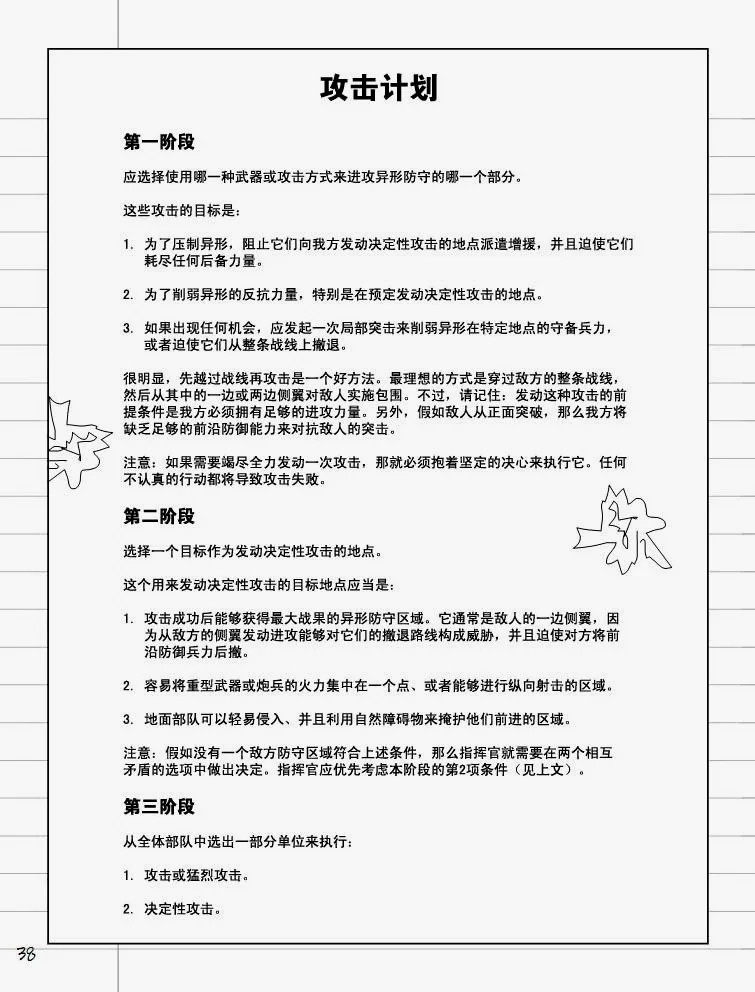 攻击计划
第一阶段
应选择使用哪一种武器或攻击方式来进攻异形防守的哪一个部分。
这些攻击的目标是：
1. 为了压制异形，阻止它们向我方发动决定性攻击的地点派遣增援，并且迫使它们
耗尽任何后备力量。
2. 为了削弱异形的反抗力量，特别是在预定发动决定性攻击的地点。
3. 如果出现任何机会，应发起一次局部突击来削弱异形在特定地点的守备兵力，
或者迫使它们从整条战线上撤退。
很明显，先越过战线再攻击是一个好方法。最理想的方式是穿过敌方的整条战线，
然后从其中的一边或两边侧翼对敌人实施包围。不过，请记住：发动这种攻击的前
提条件是我方必须拥有足够的进攻力量。另外，假如敌人从正面突破，那么我方将
缺乏足够的前沿防御能力来对抗敌人的突击。
注意：如果需要竭尽全力发动一次攻击，那就必须抱着坚定的决心来执行它。任何
不认真的行动都将导致攻击失败。
第二阶段
选择一个目标作为发动决定性攻击的地点。
这个用来发动决定性攻击的目标地点应当是：
1. 攻击成功后能够获得最大战果的异形防守区域。它通常是敌人的一边侧翼，因
为从敌方的侧翼发动进攻能够对它们的撤退路线构成威胁，并且迫使对方将前
沿防御兵力后撤。
2. 容易将重型武器或炮兵的火力集中在一个点、或者能够进行纵向射击的区域。
3. 地面部队可以轻易侵入、并且利用自然障碍物来掩护他们前进的区域。
注意：假如没有一个敌方防守区域符合上述条件，那么指挥官就需要在两个相互
矛盾的选项中做出决定。指挥官应优先考虑本阶段的第2项条件（见上文）。
第三阶段
从全体部队中选出一部分单位来执行：
1. 攻击或猛烈攻击。
2. 决定性攻击。
38